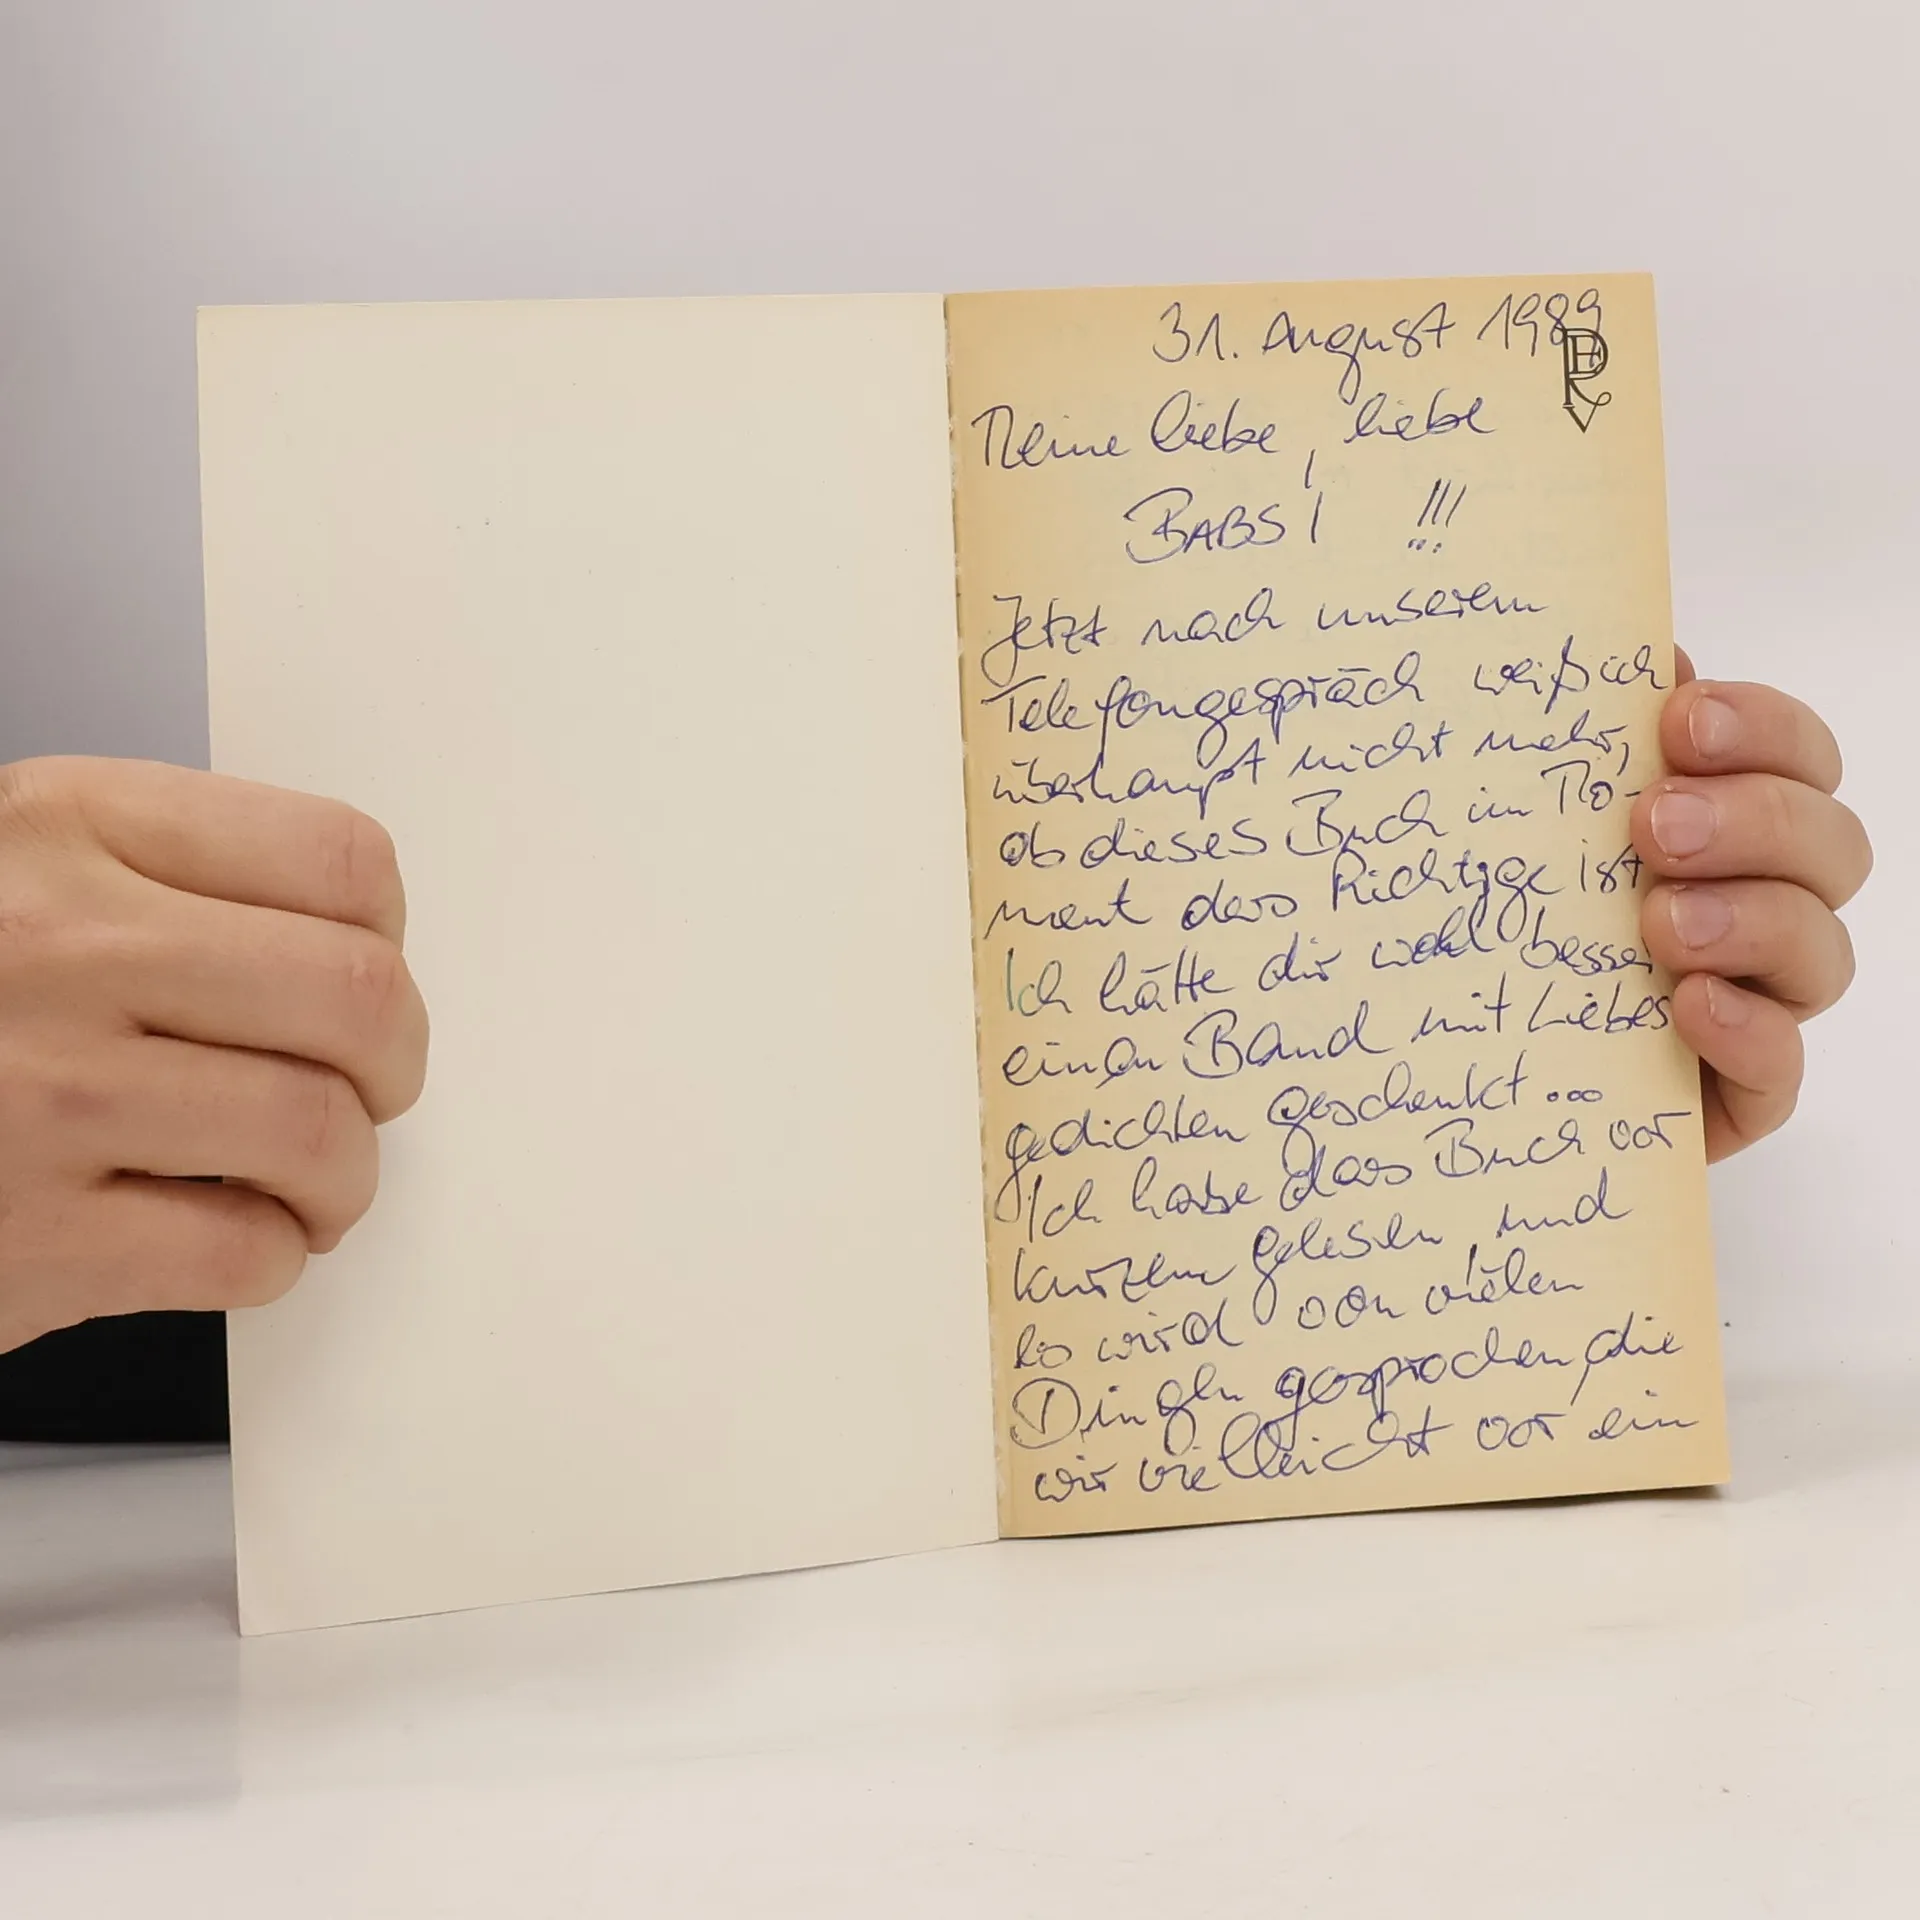 31. August 1989
Meine liebe, liebe
BABSI !!!
Jetzt nach unserem
Telefongespräch weiß ich
überhaupt nicht mehr,
ob dieses Buch im Mo-
ment das Richtige ist
Ich hätte dir wohl besser
einen Band mit Liebes
gedichten geschenkt...
Ich habe das Buch vor
kurzem gelesen, und
es wird von vielen
Dingen gesprochen, die
wir vielleicht vor ein